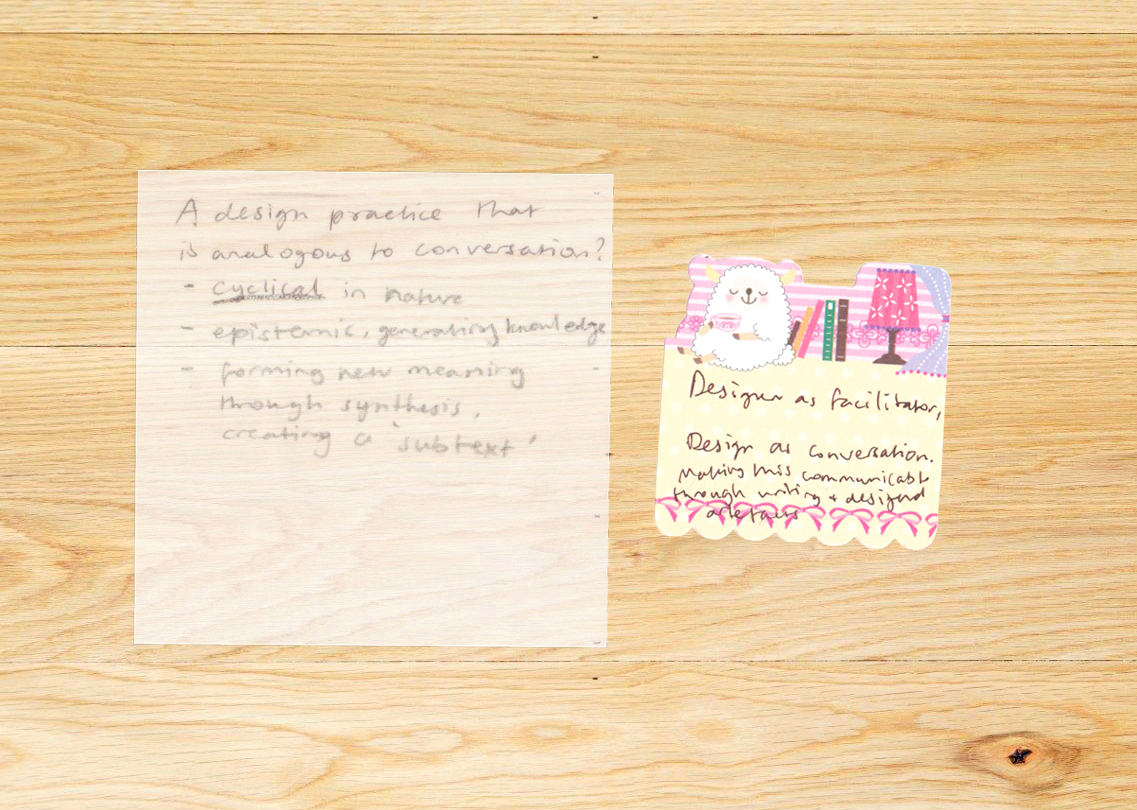 A design practice that
is analogous to conversation?
- cyclical in nature
- epistemic, generating knowledge
- forming new meaning
through synthesis,
creating a 'subtext'
Designer as facilitator,
Design as conversation.
Making this communicable
through writing + designed
artefacts